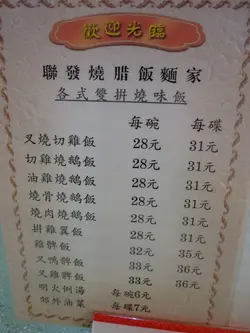 歡迎光臨
聯發燒腊飯麵家
各式雙拼燒味飯
每碗 每碟
叉燒切雞飯 28元 31元
切雞燒鵝飯 28元 31元
油雞燒鵝飯 28元 31元
燒骨燒鵝飯 28元 31元
燒肉燒鵝飯 28元 31元
拼雞翼飯 28元 31元
雞髀飯 32元 35元
叉鴨髀飯 33元 36元
叉雞髀飯 33元 36元
明火例湯 每碗6元
郊外油菜 每碟7元